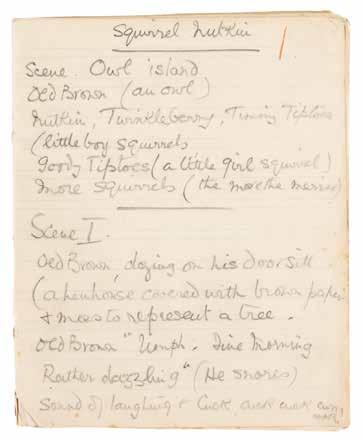 Squirrel Nutkin
Scene. Owl island
Old Brown (an owl)
Nutkin, Twinkleberry, Timmy Tiptoes
(little boy squirrels
Goody Tiptoes (a little girl squirrel)
More squirrels (the more the merrier)
Scene I.
Old Brown, dozing on his doorsill
(a henhouse covered with brown paper
& moss to represent a tree.
Old Brown "Umph. Fine Morning
Rather dazzling" (He snores)
Sound of laughing & Cuck cuck cuck